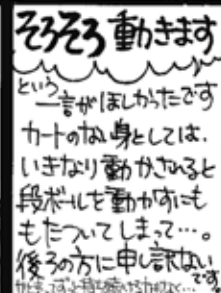 そろそろ動きます
という
一言がほしかったです
カートのない身としては、
いきなり動かされると
段ボールを動かすにも
もたついてしまって…。
後ろの方に申し訳ない
です